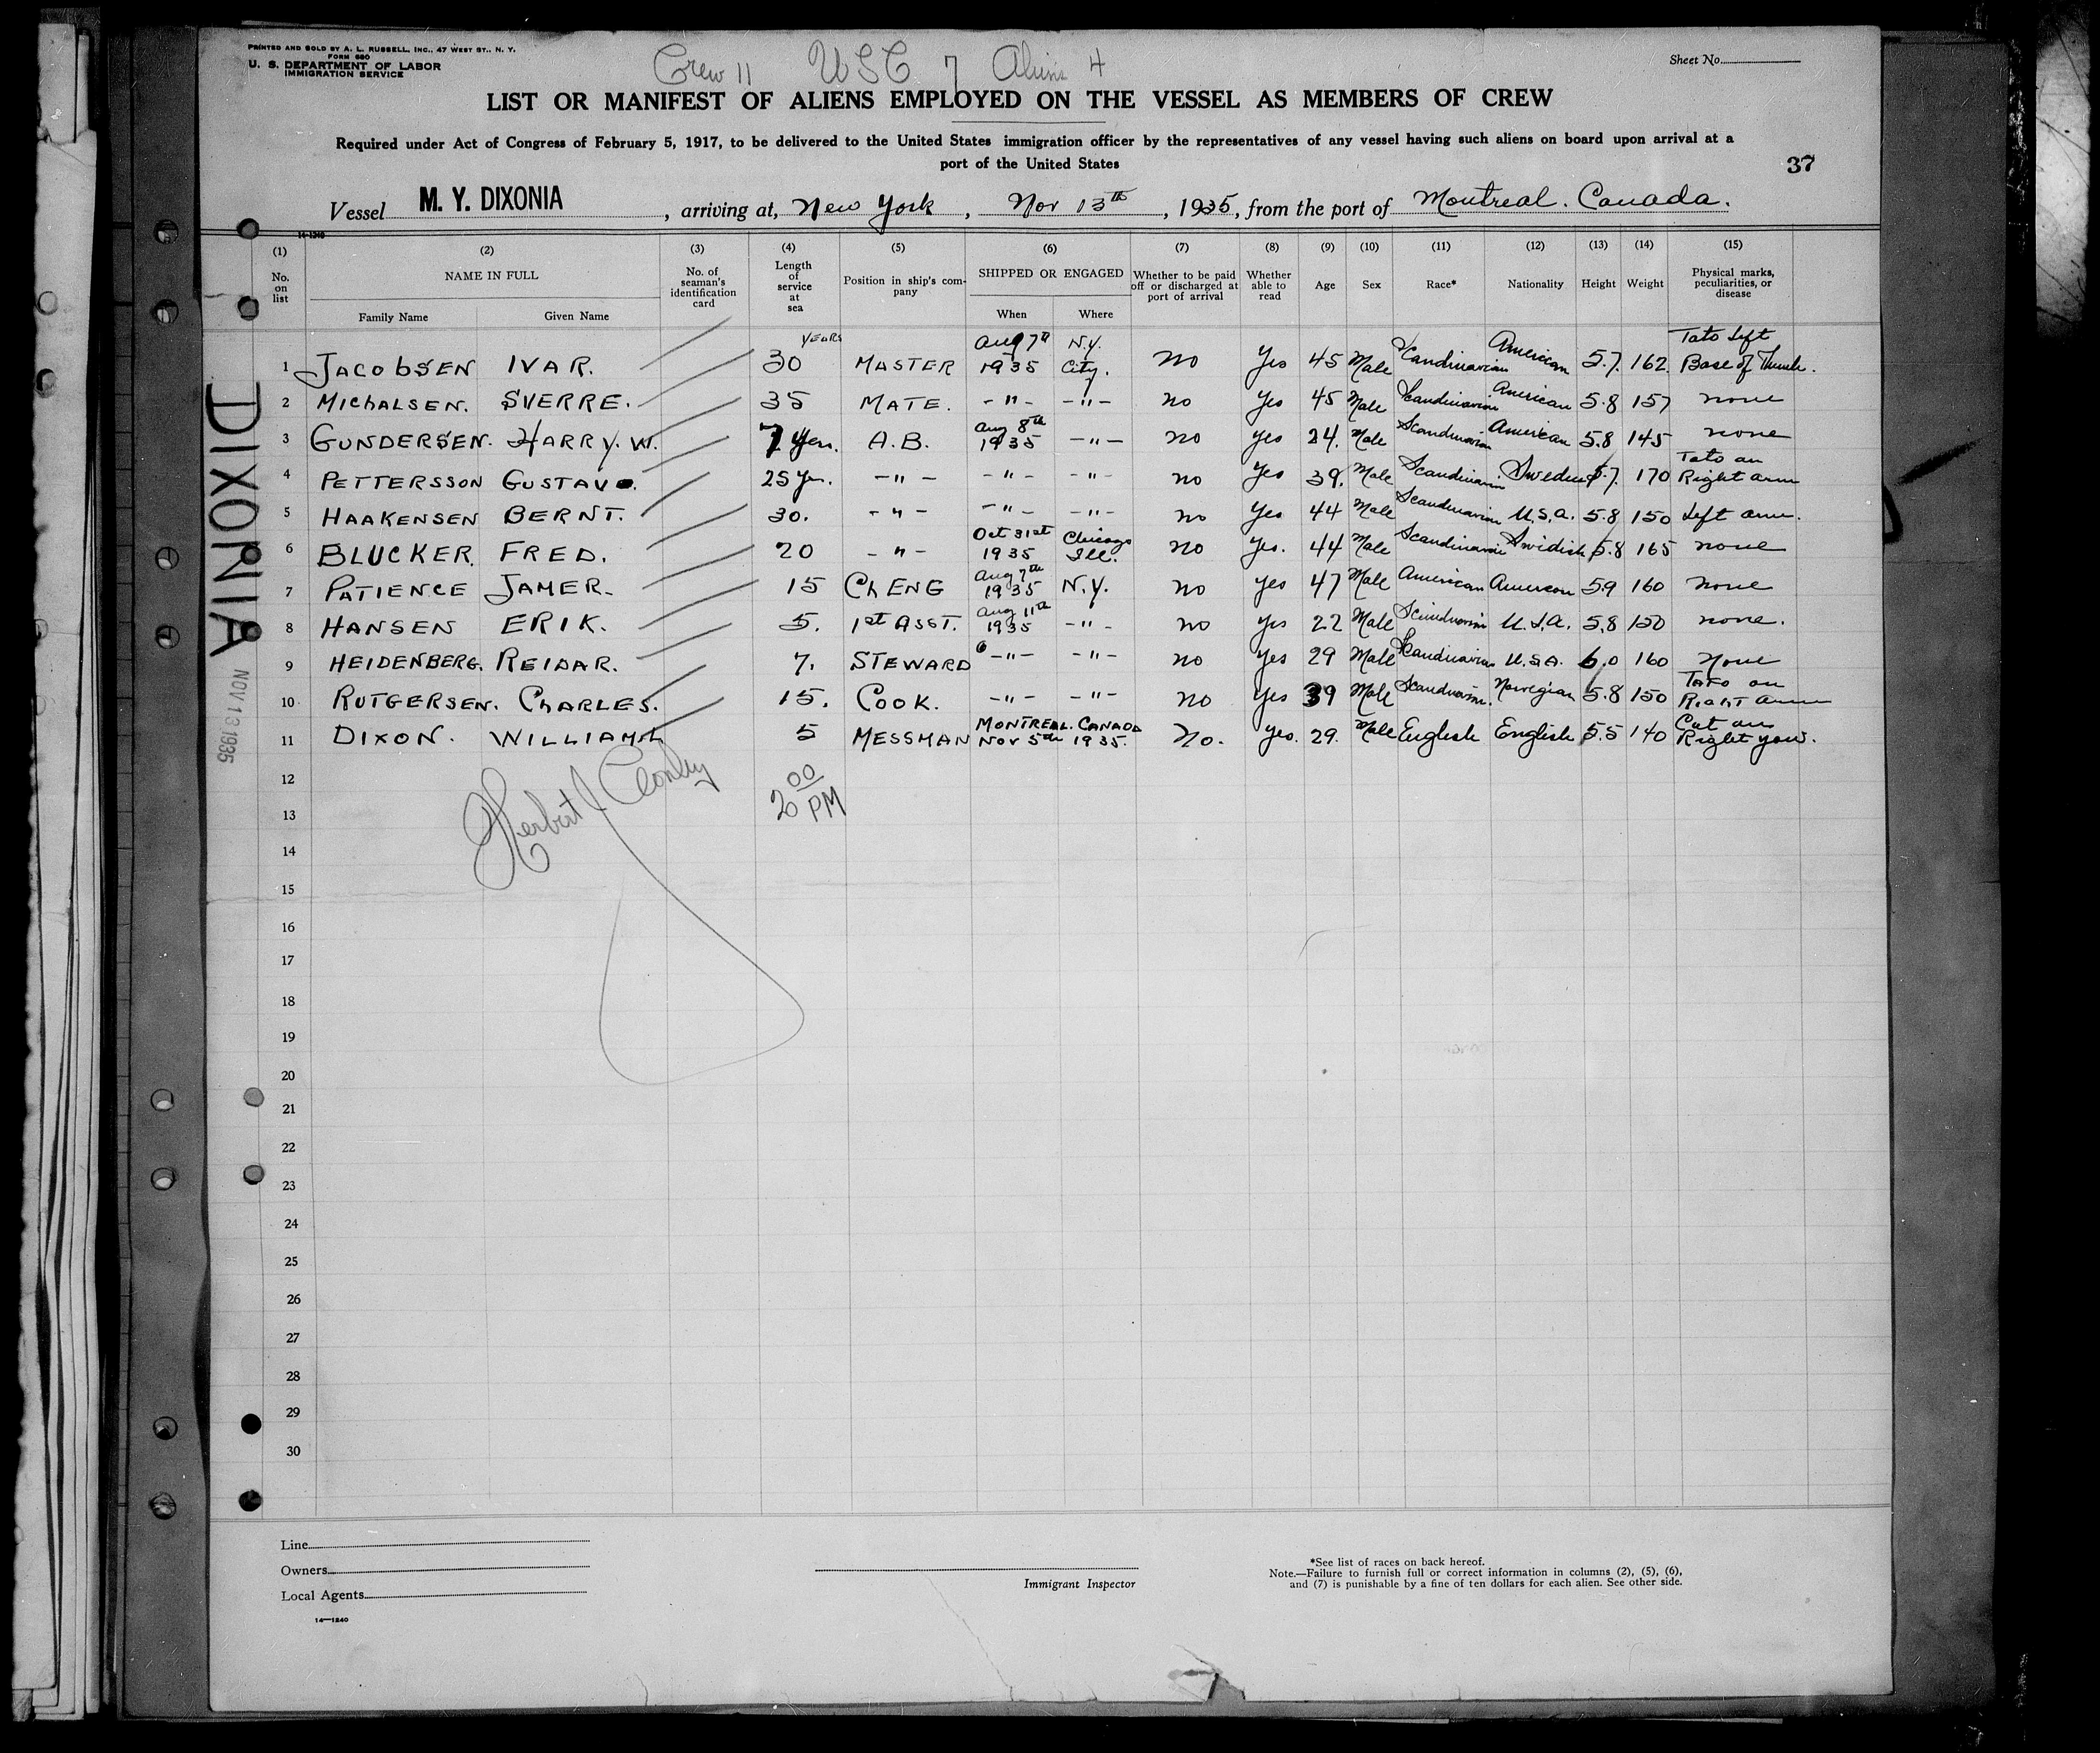 PRINTED AND SOLD BY A. L. RUSSELL, INC., 47 WEST ST., N. Y.
FORM 680
U. S. DEPARTMENT OF LABOR
IMMIGRATION SERVICE
Crew 11 USC 7 Aliens 4
Sheet No.
LIST OR MANIFEST OF ALIENS EMPLOYED ON THE VESSEL AS MEMBERS OF CREW
Required under Act of Congress of February 5, 1917, to be delivered to the United States immigration officer by the representatives of any vessel having such aliens on board upon arrival at a
port of the United States
37
Vessel M. Y. DIXONIA, arriving at, New York, Nov 13th, 1935, from the port of Montreal. Canada.
14-1240
(1) (2) (3) (4) (5) (6) (7) (8) (9) (10) (11) (12) (13) (14) (15)
No. on list NAME IN FULL Family Name Given Name No. of seaman's identification card Length of service at sea Position in ship's company SHIPPED OR ENGAGED When Where Whether to be paid off or discharged at port of arrival Whether able to read Age Sex Race* Nationality Height Weight Physical marks, peculiarities, or disease
1 JACOBSEN IVAR. YEARS 30 MASTER Aug 7th 1935 N.Y. City. No Yes 45 Male Scandinavian American 5.7. 162. Tato Left Base of Thumb.
2 MICHALSEN. SVERRE. 35 MATE. -"- -"- no Yes 45 Male Scandinavian American 5.8 157 none
3 GUNDERSEN. HARRY. W. 7 Yrs. A.B. Aug 8th 1935 -"- no yes 24. Male Scandinavian American 5.8 145 none
4 PETTERSSON GUSTAV. 25 Yr. -"- -"- -"- no Yes 39. Male Scandinavian Sweden 5.7. 170 Tato on Right arm
5 HAAKENSEN BERNT. 30. -"- -"- -"- no Yes 44 Male Scandinavian U.S.A. 5.8 150 Left arm.
6 BLUCKER. FRED. 20 -"- Oct 31st 1935 Chicago Ill. no Yes. 44 Male Scandinavian Swidish 5.8 165 none
7 PATIENCE JAMER. 15 Ch ENG Aug 7th 1935 N.Y. no Yes 47 Male American American 5.9 160 none
8 HANSEN ERIK. 5. 1st ASST. Aug 11th 1935 -"- no yes 22 Male Scandinavian U.S.A. 5.8 150 none.
9 HEIDENBERG. REIDAR. 7. STEWARD -"- -"- no Yes 29 Male Scandinavian U.S.A. 6.0 160 None
10 RUTGERSEN. CHARLES. 15. COOK. -"- -"- no Yes 39 Male Scandinavian. Norwegian 5.8 150 Tato on Right arm
11 DIXON. WILLIAM. 5 MESSMAN MONTREAL. CANADA Nov 5th 1935. No. yes. 29. Male English English 5.5 140 Cut on Right
DIXONIA
NOV 13 1935
12
Herbert J
2 00 PM
13
14
15
16
17
18
19
20
21
22
23
24
25
26
27
28
29
30
Line
Owners
Local Agents
14—1240
Immigrant Inspector
*See list of races on back hereof.
Note.—Failure to furnish full or correct information in columns (2), (5), (6),
and (7) is punishable by a fine of ten dollars for each alien. See other side.